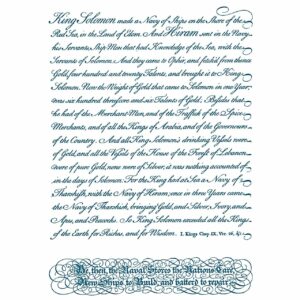 King Solomon made a Navy of Ships on the Shore of the
Red Sea, in the Land of Edom. And Hiram sent in the Navy
his Servants, Ship Men that had Knowledge of the Sea, with the
Servants of Solomon. And they came to Ophir, and fetch'd from thence
Gold, four hundred and twenty Talents, and brought it to King
Solomon. Now the Weight of Gold that came to Solomon in one Year,
was six hundred threescore and six Talents of Gold. Besides that
he had of the Merchant Men, and of the Traffick of the Spice
Merchants, and of all the Kings of Arabia, and of the Governours
of the Country. And all King Solomon's drinking Vessels were
of Gold, and all the Vessels of the House of the Forest of Lebanon
were of pure Gold, none were of Silver; it was nothing accounted of
in the days of Solomon. For the King had at Sea a Navy of
Tharshish, with the Navy of Hiram; once in three Years came
the Navy of Tharshish, bringing Gold, and Silver, Ivory, and
Apes, and Peacocks. So King Solomon exceeded all the Kings
of the Earth for Riches, and for Wisdom. I. Kings Chap IX. Ver. 26, &c.
Be then, the Naval Stores the Nations Care,
New Ships to Build, and batter'd to repair.